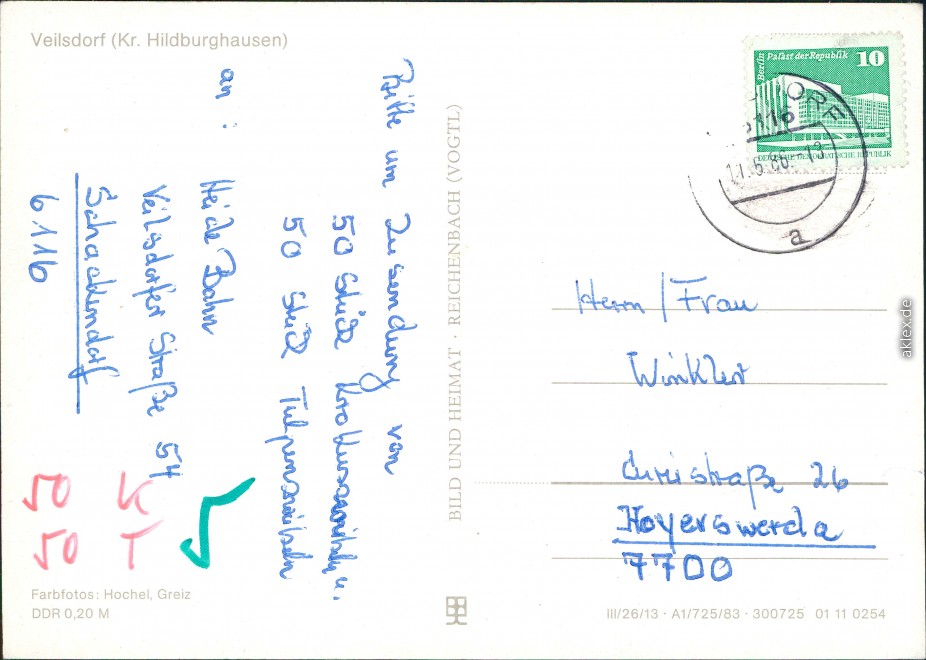 Veilsdorf (Kr. Hildburghausen)
Bitte um Zusendung von
50 Stück Krokuszwiebeln u.
50 Stück Tulpenzwiebeln
an :
Heide Bahn
Veilsdorfer Straße 54
Schackendorf
6116
50 K
50 T
Farbfotos: Hochel, Greiz
DDR 0,20 M
BILD UND HEIMAT · REICHENBACH (VOGTL)
Berlin
Palast der Republik
10
DEUTSCHE DEMOKRATISCHE REPUBLIK
6116
a
Herrn / Frau
Winkler
Curiestraße 26
Hoyerswerda
7700
III/26/13 · A1/725/83 · 300725 01 11 0254
aklex.de